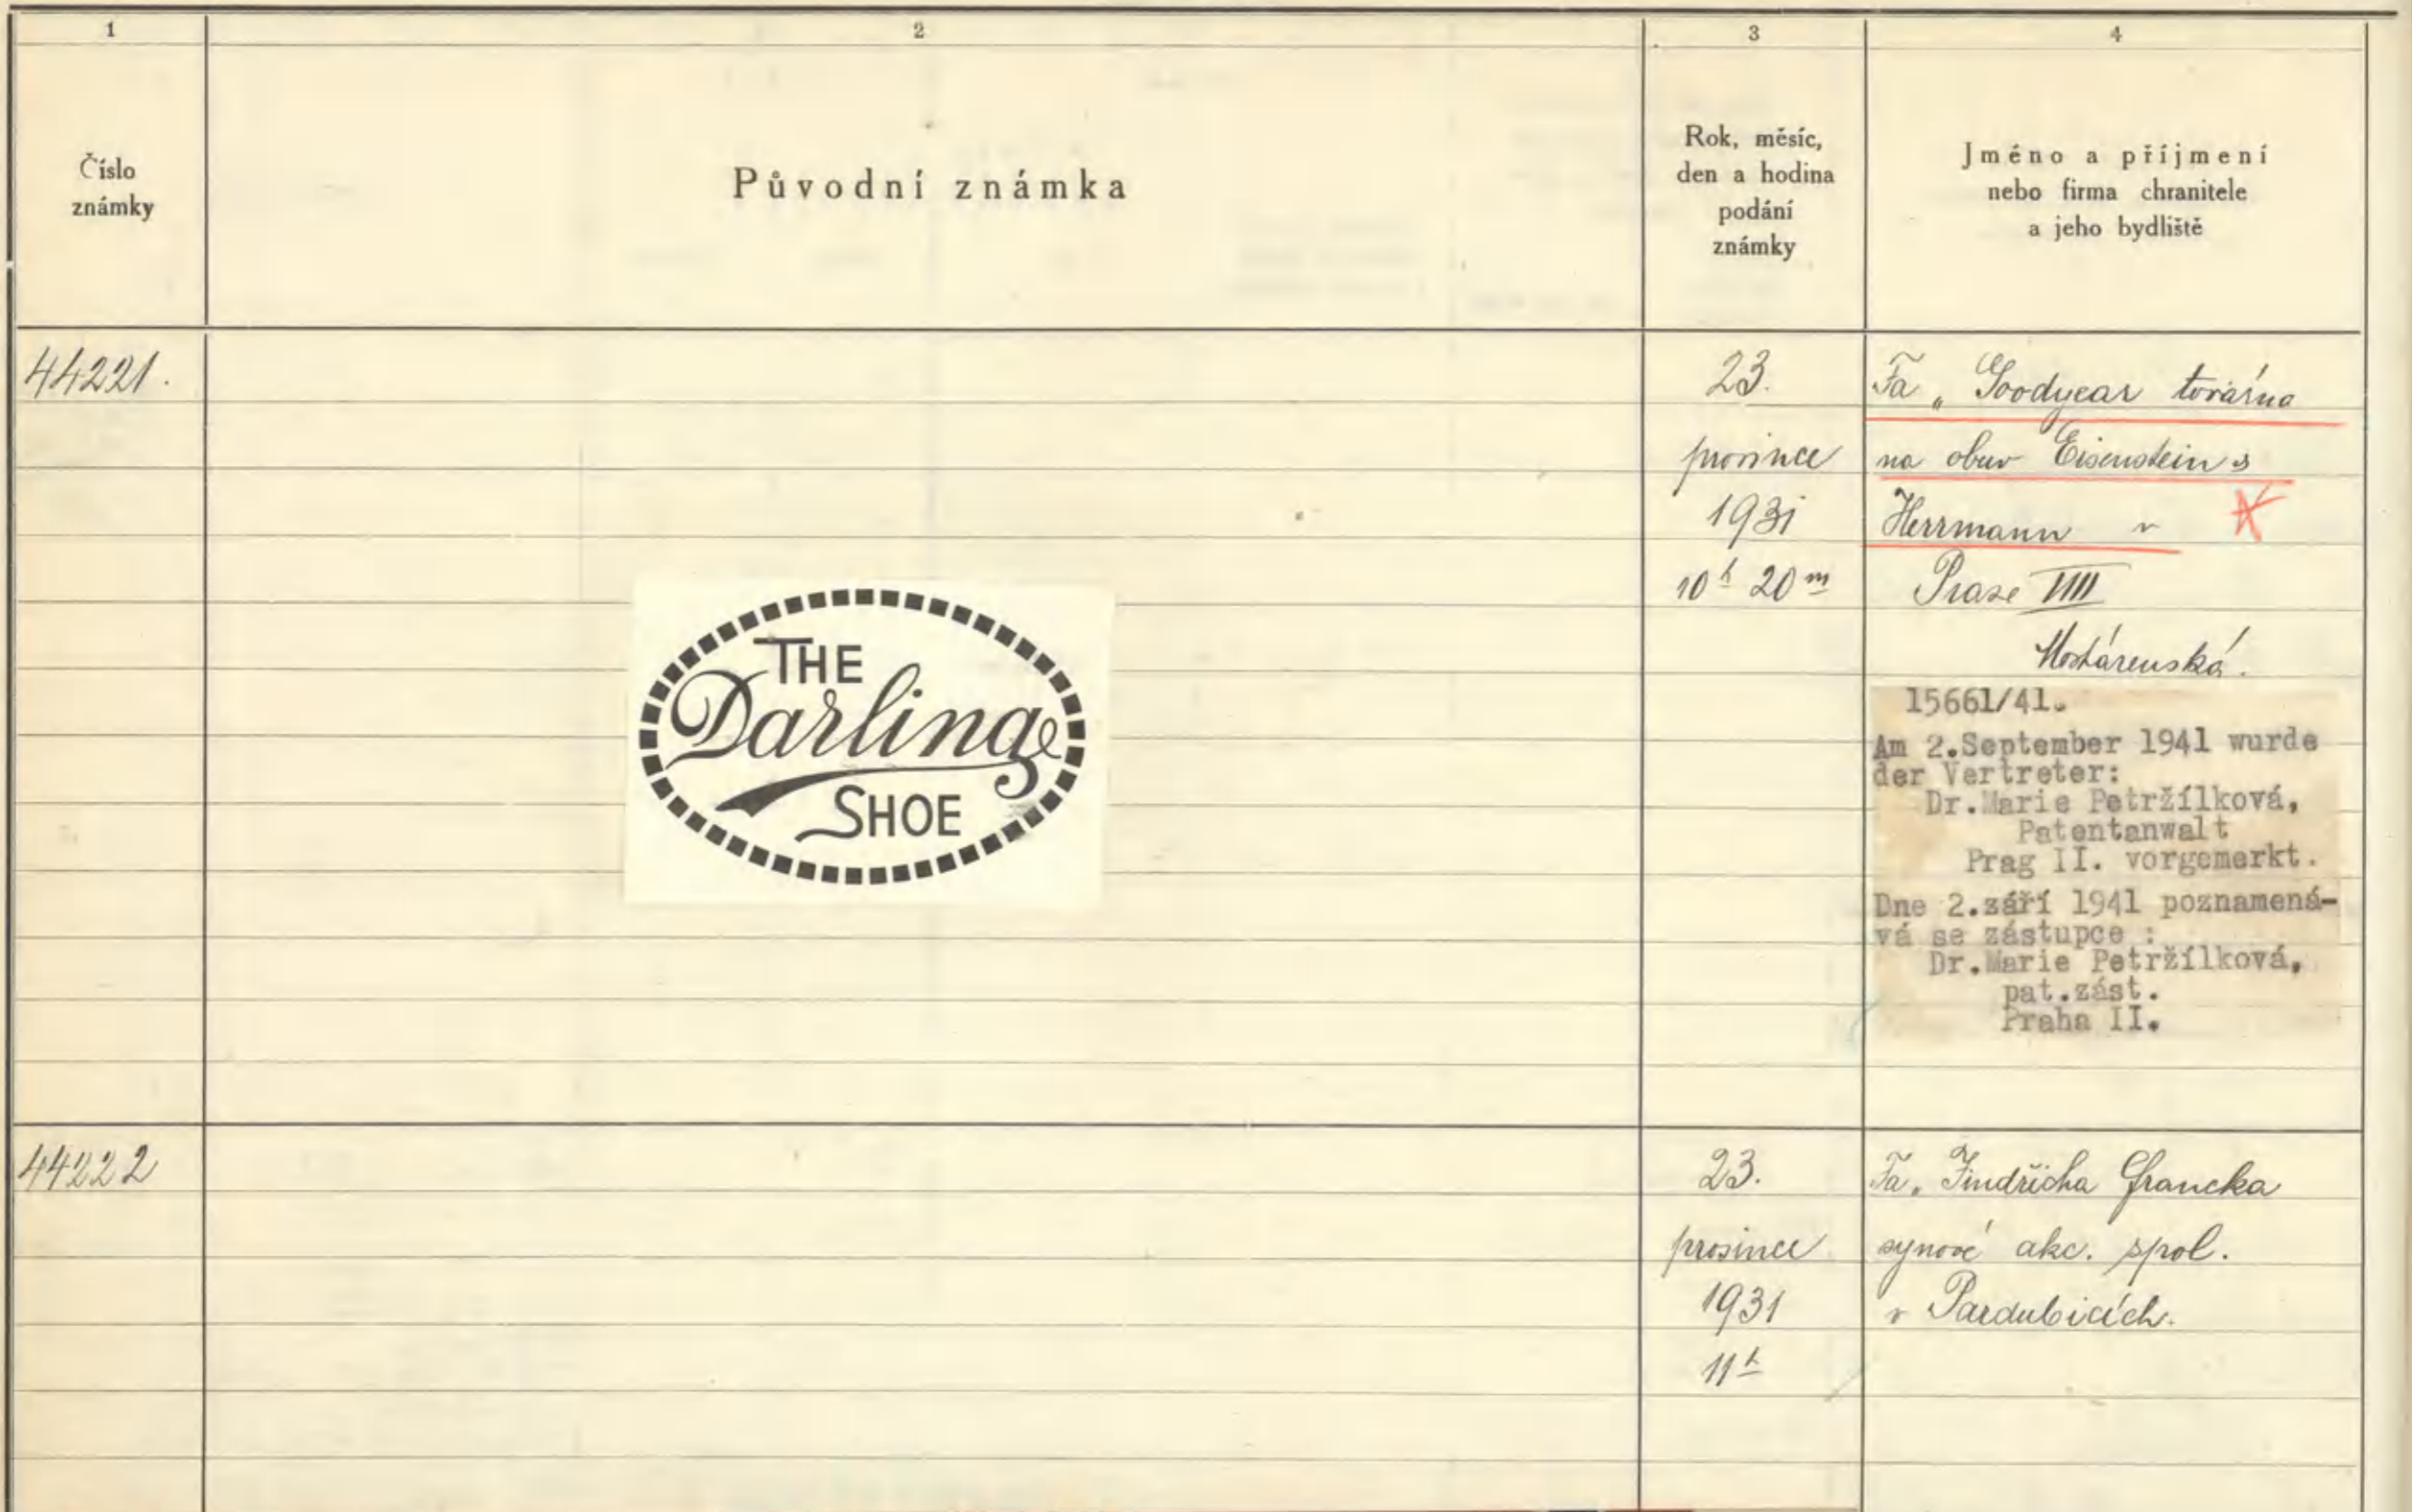 1
2
3
4
Číslo
známky
Původní známka
Rok, měsíc,
den a hodina
podání
známky
Jméno a příjmení
nebo firma chranitele
a jeho bydliště
44221.
THE
Darling
SHOE
23.
prosince
1931
10h 20m
Fa „Goodyear továrna
na obuv Eisenstein s
Herrmann v
Praze VIII
15661/41.
Am 2.September 1941 wurde
der Vertreter:
Dr.Marie Petržílková,
Patentanwalt
Prag II. vorgemerkt.
Dne 2.září 1941 poznamená-
vá se zástupce :
Dr.Marie Petržílková,
pat.zást.
Praha II.
44222
23.
prosince
1931
11h
Fa „Jindřicha Francka
synové akc. spol.
v Pardubicích.